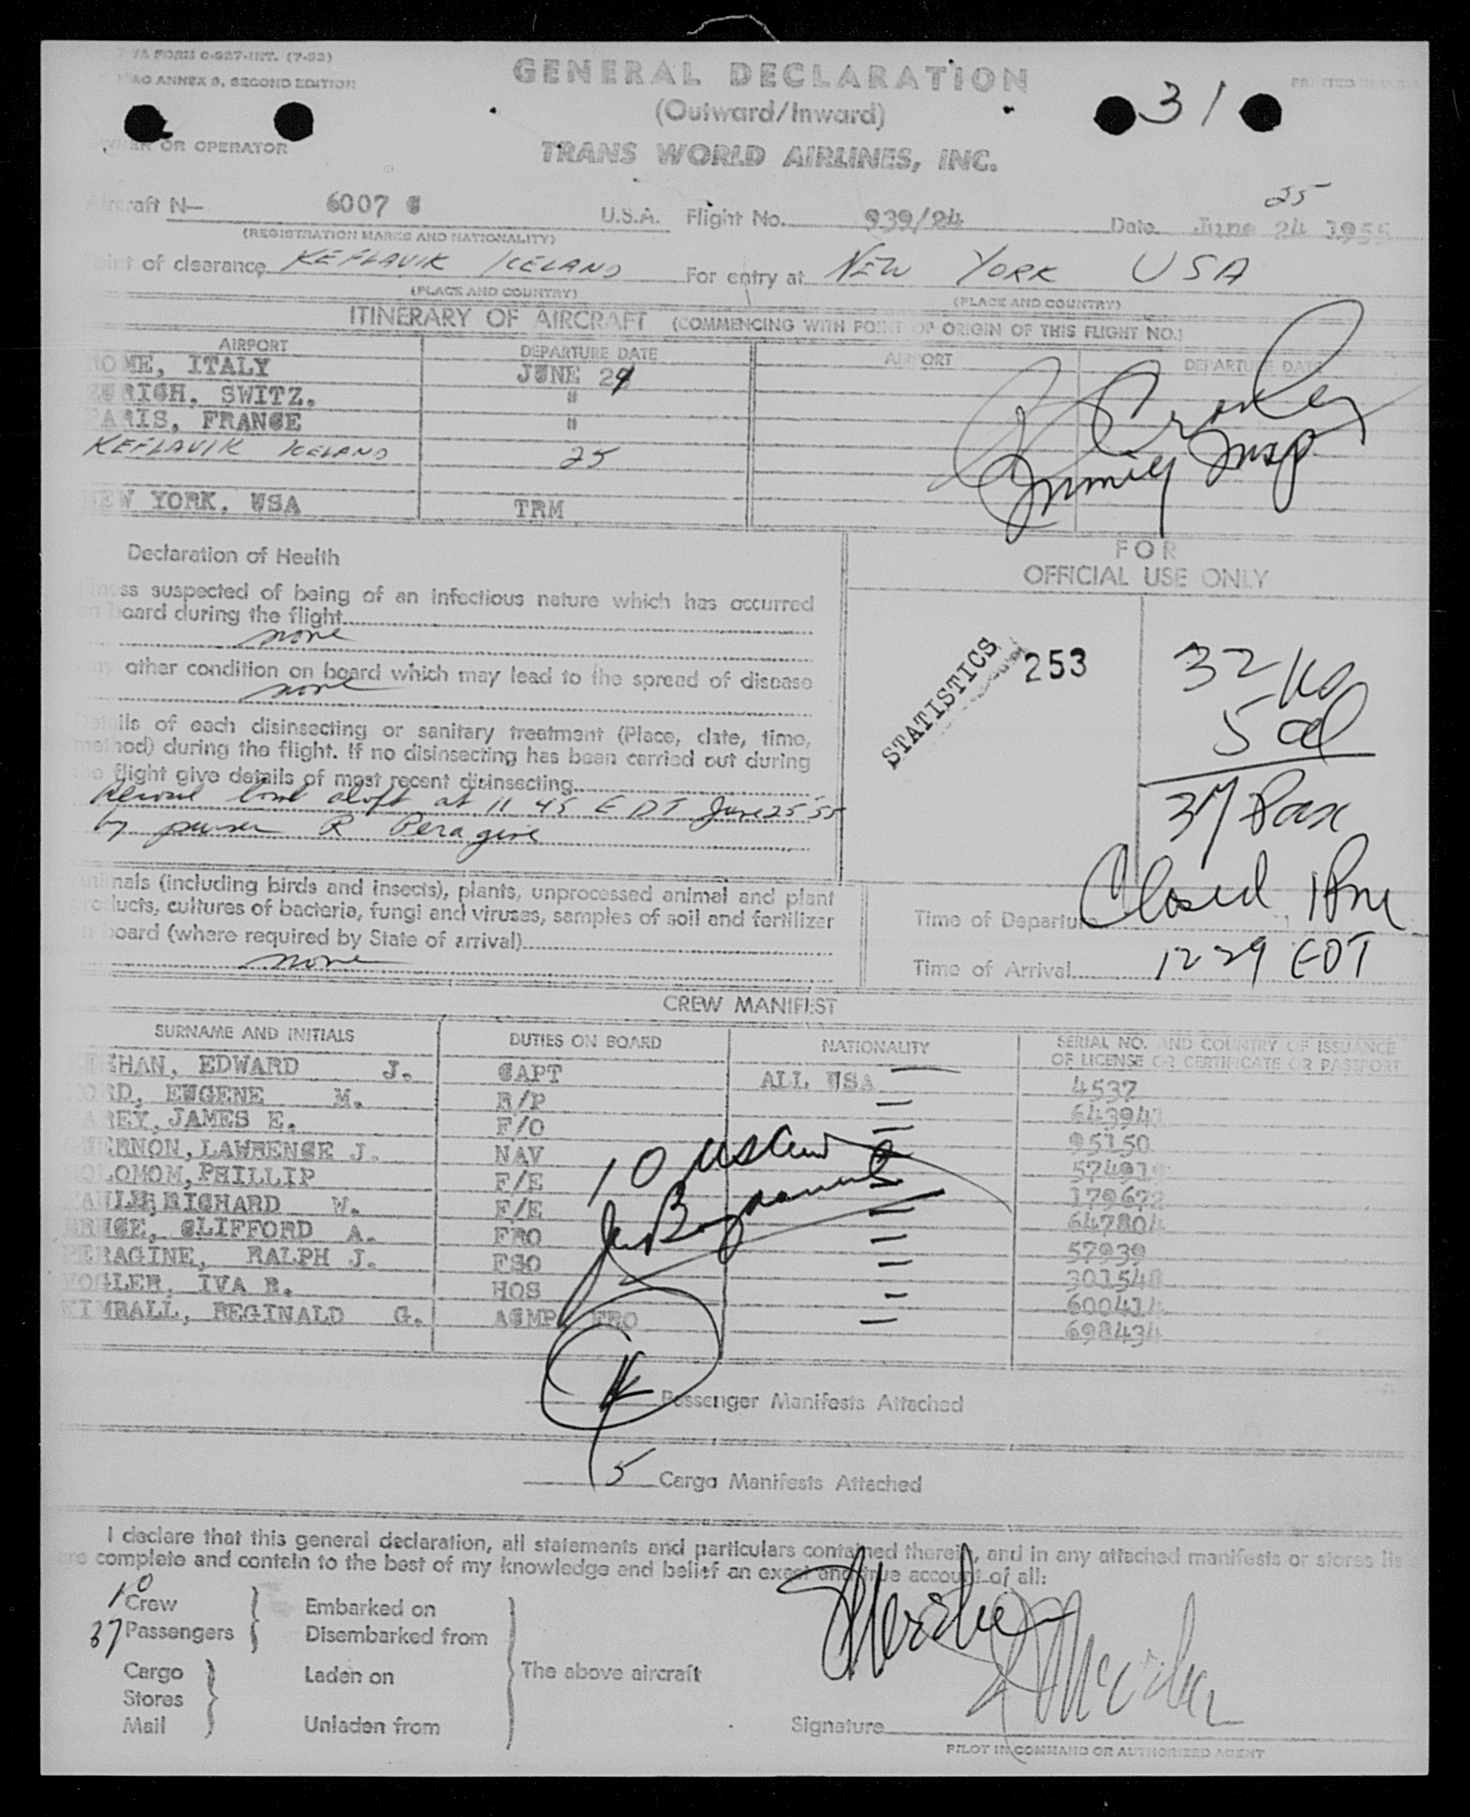 FORM C-227-INT. (7-53)
ANNEX 9, SECOND EDITION
GENERAL DECLARATION
(Outward/Inward)
31
OR OPERATOR
TRANS WORLD AIRLINES, INC.
25
Aircraft N— 6007 U.S.A. Flight No. 939/24 Date June 24 1955
(REGISTRATION MARKS AND NATIONALITY)
of clearance KEFLAVIK ICELAND For entry at NEW YORK USA
(PLACE AND COUNTRY) (PLACE AND COUNTRY)
ITINERARY OF AIRCRAFT (COMMENCING WITH POINT OF ORIGIN OF THIS FLIGHT NO.)
AIRPORT DEPARTURE DATE AIRPORT DEPARTURE DATE
ROME, ITALY JUNE 24
ZURICH, SWITZ. "
PARIS, FRANCE "
KEFLAVIK ICELAND 25
Immig Insp
NEW YORK, USA TRM
Declaration of Health
FOR
OFFICIAL USE ONLY
Illness suspected of being of an infectious nature which has occurred
on board during the flight
none
any other condition on board which may lead to the spread of disease
none
STATISTICS 253
32 USA
5 al
37 Pax
Details of each disinsecting or sanitary treatment (Place, date, time,
method) during the flight. If no disinsecting has been carried out during
the flight give details of most recent disinsecting
Aerosol bomb aloft at 11 45 EDT June 25 55
by purser R Peragine
Animals (including birds and insects), plants, unprocessed animal and plant
products, cultures of bacteria, fungi and viruses, samples of soil and fertilizer
on board (where required by State of arrival)
none
Time of Departure Closed 1 PM
Time of Arrival 1229 EDT
CREW MANIFEST
SURNAME AND INITIALS DUTIES ON BOARD NATIONALITY SERIAL NO. AND COUNTRY OF ISSUANCE
OF LICENSE OR CERTIFICATE OR PASSPORT
EDWARD J. CAPT ALL USA 4537
EUGENE M. R/P 64394
JAMES E. F/O 95150
LAWRENCE J. NAV 57491
SOLOMOM, PHILLIP F/E 179672
RICHARD W. F/E 647804
CLIFFORD A. FRO 57939
PERAGINE, RALPH J. FSO 301548
IVA R. HOS 600414
KIMBALL, REGINALD G. ACMP, FRO 698434
10 USCin
Passenger Manifests Attached
5 Cargo Manifests Attached
I declare that this general declaration, all statements and particulars contained therein, and in any attached manifests or stores lis
are complete and contain to the best of my knowledge and belief an exact and true account of all:
10 Crew Embarked on
37 Passengers Disembarked from
Cargo Laden on The above aircraft
Stores
Mail Unladen from
Signature
PILOT IN COMMAND OR AUTHORIZED AGENT